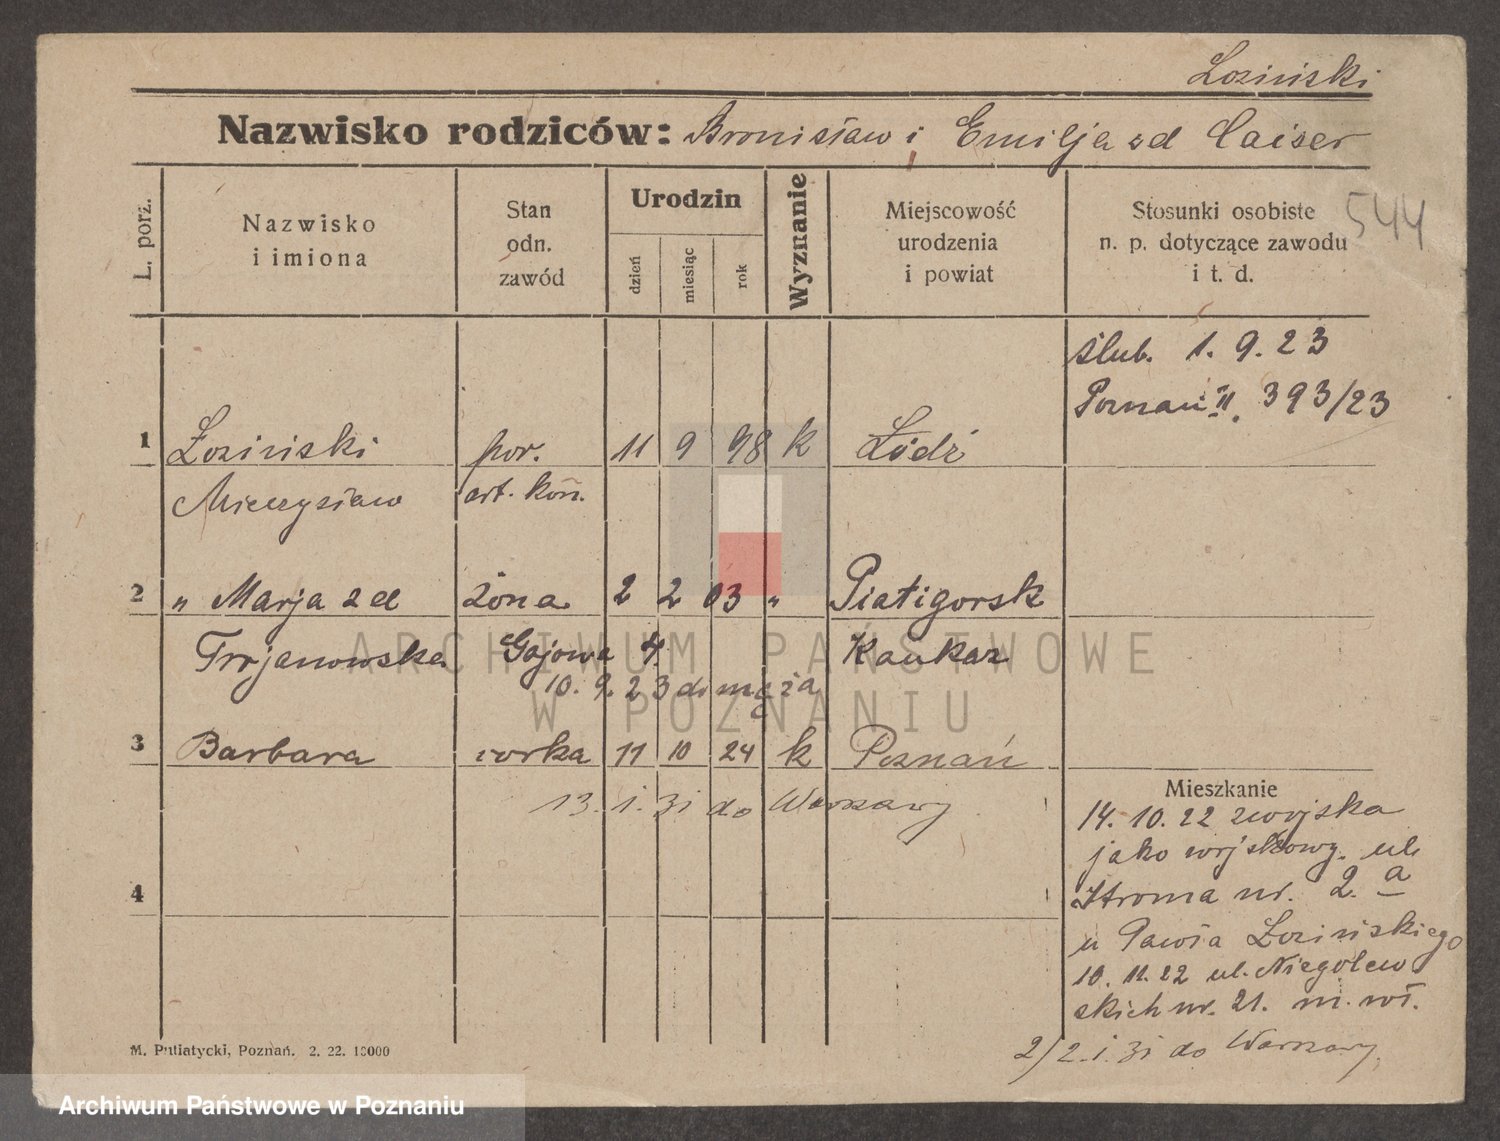 Łoziński
Nazwisko rodziców: Bronisław i Emilja zd Caiser
L. porz.
Nazwisko
i imiona
Stan
odn.
zawód
Urodzin
dzień
miesiąc
rok
Wyznanie
Miejscowość
urodzenia
i powiat
Stosunki osobiste
n. p. dotyczące zawodu
i t. d.
544
ślub. 1. 9. 23
Poznań II. 393/23
1 Łoziński por. 11 9 98 k Łódź
Mieczysław art. kon.
2 „ Marja z d żona 2 2 03 „ Piatigorsk
Trojanowska Gajowa 4. Kaukaz
10. 9. 23 do męża
3 Barbara córka 11 10 24 k Poznań
13. 1. 31 do Warszawy
4
Mieszkanie
14. 10. 22 z wojska
jako wojskowy. ul.
Stroma nr. 2. a
u Pawła Łozińskiego
10. 11. 22 ul. Niegolew
skich nr. 21. m. wł.
2/2. 1. 31 do Warszawy
M. Putiatycki, Poznań. 2. 22. 10000
ARCHIWUM PAŃSTWOWE
W POZNANIU
Archiwum Państwowe w Poznaniu